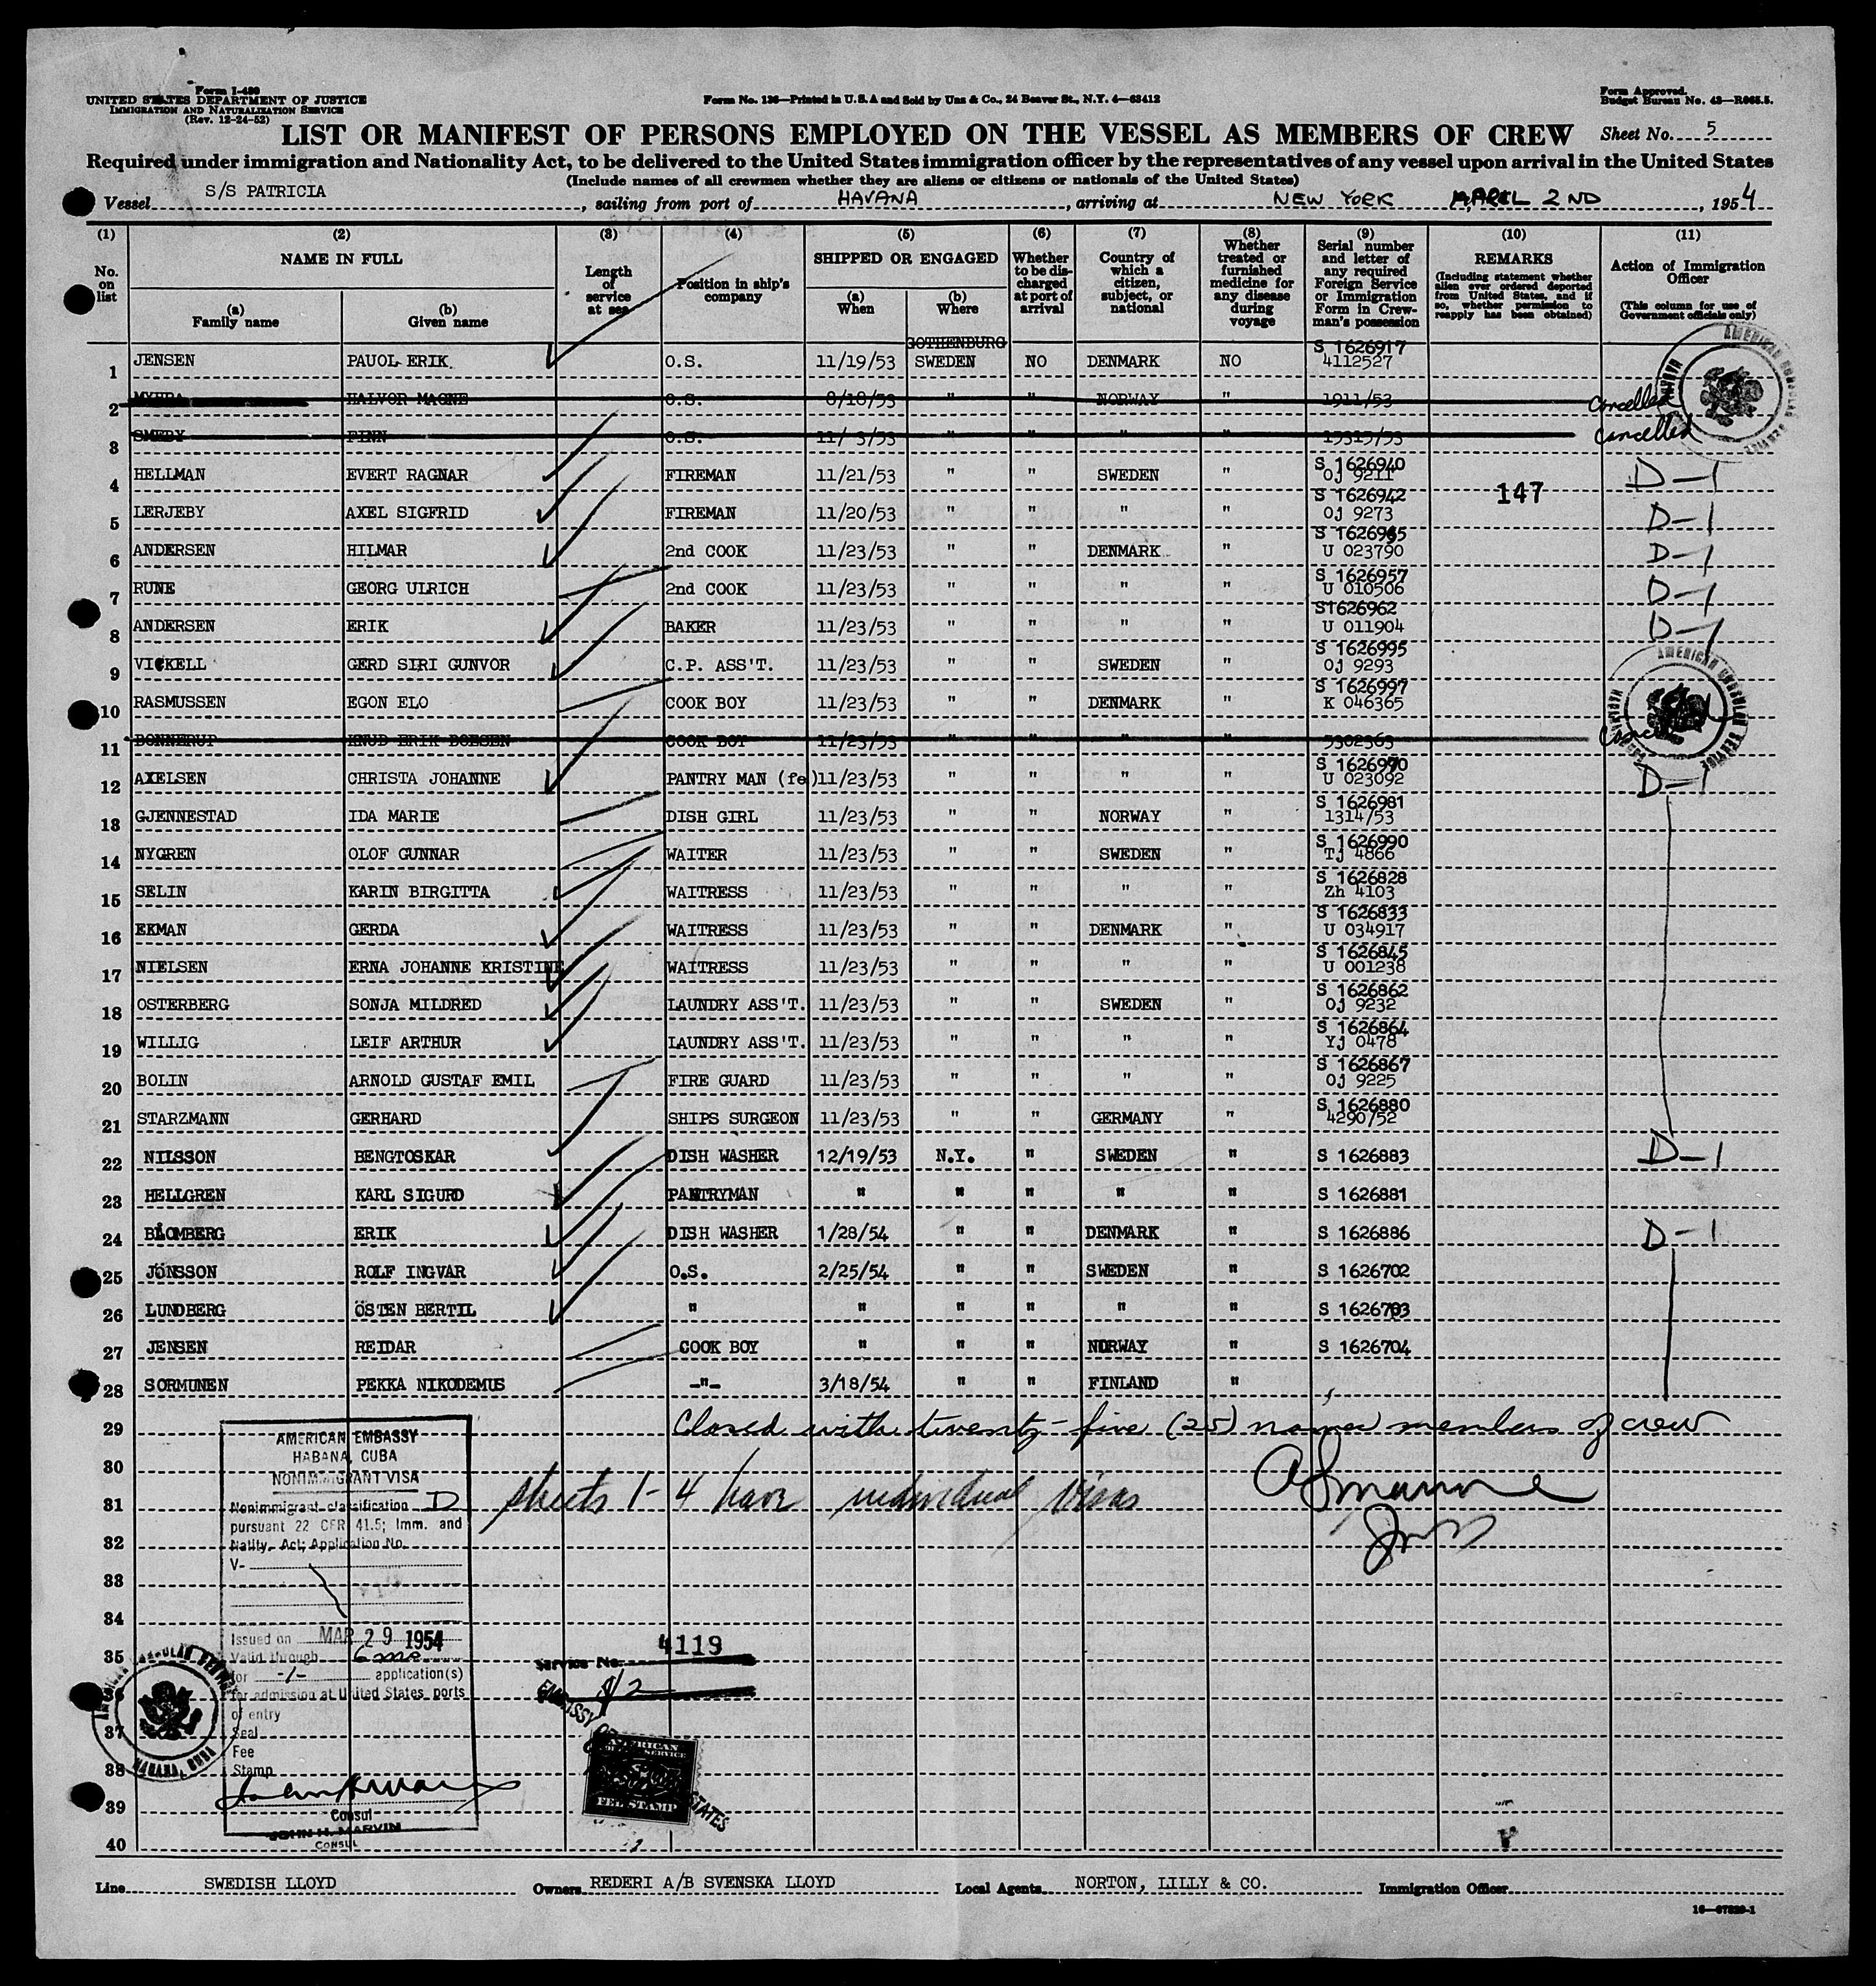 Form I-480
UNITED STATES DEPARTMENT OF JUSTICE
IMMIGRATION AND NATURALIZATION SERVICE
(Rev. 12-24-52)
Form No. 136—Printed in U.S.A and Sold by Unz & Co., 24 Beaver St., N.Y. 4—63412
Form Approved.
Budget Bureau No. 43—R065.5.
LIST OR MANIFEST OF PERSONS EMPLOYED ON THE VESSEL AS MEMBERS OF CREW Sheet No. 5
Required under immigration and Nationality Act, to be delivered to the United States immigration officer by the representatives of any vessel upon arrival in the United States
(Include names of all crewmen whether they are aliens or citizens or nationals of the United States)
Vessel S/S PATRICIA, sailing from port of HAVANA, arriving at NEW YORK APRIL 2ND, 1954
(1) (2) (3) (4) (5) (6) (7) (8) (9) (10) (11)
No. on list
NAME IN FULL
(a) Family name
(b) Given name
Length of service at sea
Position in ship's company
SHIPPED OR ENGAGED
(a) When
(b) Where
Whether to be discharged at port of arrival
Country of which a citizen, subject, or national
Whether treated or furnished medicine for any disease during voyage
Serial number and letter of any required Foreign Service or Immigration Form in Crewman's possession
REMARKS
(Including statement whether alien ever ordered deported from United States, and if so, whether permission to reapply has been obtained)
Action of Immigration Officer
(This column for use of Government officials only)
GOTHENBURG S 1626917
1 JENSEN PAUOL ERIK. O.S. 11/19/53 SWEDEN NO DENMARK NO 4112527
2 MYHRA HALVOR MAGNE O.S. 8/18/53 " " NORWAY " 1911/53 Cancelled
3 SMEBY FINN O.S. 11/ 3/53 " " " " 15315/53 Cancelled
4 HELLMAN EVERT RAGNAR FIREMAN 11/21/53 " " SWEDEN " S 1626940 OJ 9211 D-1
147
5 LERJEBY AXEL SIGFRID FIREMAN 11/20/53 " " " " S 1626942 OJ 9273 D-1
6 ANDERSEN HILMAR 2nd COOK 11/23/53 " " DENMARK " S 1626945 U 023790 D-1
7 RUNE GEORG ULRICH 2nd COOK 11/23/53 " " " " S 1626957 U 010506 D-1
8 ANDERSEN ERIK BAKER 11/23/53 " " " " S1626962 U 011904 D-1
9 VICKELL GERD SIRI GUNVOR C.P. ASS'T. 11/23/53 " " SWEDEN " S 1626995 OJ 9293
10 RASMUSSEN EGON ELO COOK BOY 11/23/53 " " DENMARK " S 1626997 K 046365
11 BONNERUP KNUD ERIK BOESEN COOK BOY 11/23/53 " " " " 5302363
12 AXELSEN CHRISTA JOHANNE PANTRY MAN (fe) 11/23/53 " " " " S 1626970 U 023092 D-1
13 GJENNESTAD IDA MARIE DISH GIRL 11/23/53 " " NORWAY " S 1626981 1314/53
14 NYGREN OLOF GUNNAR WAITER 11/23/53 " " SWEDEN " S 1626990 TJ 4866
15 SELIN KARIN BIRGITTA WAITRESS 11/23/53 " " " " S 1626828 Zh 4103
16 EKMAN GERDA WAITRESS 11/23/53 " " DENMARK " S 1626833 U 034917
17 NIELSEN ERNA JOHANNE KRISTINE WAITRESS 11/23/53 " " " " S 1626845 U 001238
18 OSTERBERG SONJA MILDRED LAUNDRY ASS'T. 11/23/53 " " SWEDEN " S 1626862 OJ 9232
19 WILLIG LEIF ARTHUR LAUNDRY ASS'T. 11/23/53 " " " " S 1626864 YJ 0478
20 BOLIN ARNOLD GUSTAF EMIL FIRE GUARD 11/23/53 " " " " S 1626867 OJ 9225
21 STARZMANN GERHARD SHIPS SURGEON 11/23/53 " " GERMANY " S 1626880 4290/52
22 NILSSON BENGTOSKAR DISH WASHER 12/19/53 N.Y. " SWEDEN " S 1626883 D-1
23 HELLGREN KARL SIGURD PANTRYMAN " " " " " S 1626881
24 BLOMBERG ERIK DISH WASHER 1/28/54 " " DENMARK " S 1626886 D-1
25 JÖNSSON ROLF INGVAR O.S. 2/25/54 " " SWEDEN " S 1626702
26 LUNDBERG ÖSTEN BERTIL " " " " " " S 1626703
27 JENSEN REIDAR COOK BOY " " " NORWAY " S 1626704
28 SORMUNEN PEKKA NIKODEMUS -"- 3/18/54 " " FINLAND "
29 Closed with twenty-five (25) names members of crew
30
31 sheets 1-4 have individual visas
32
33
34
35
36
37
38
39
40
AMERICAN EMBASSY
HABANA, CUBA
NONIMMIGRANT VISA
Nonimmigrant classification D
pursuant 22 CFR 41.5; Imm. and
Natlty. Act; Application No.
V-
Issued on MAR 29 1954
Valid through 6 mos
for -1- application(s)
for admission at United States ports
of entry
Seal
Fee
Stamp
Consul
JOHN H. MARVIN
CONSUL
AMERICAN CONSULAR SERVICE
HABANA, CUBA
Service No. 4119
$2
AMERICAN
SERVICE
FEE STAMP
Line SWEDISH LLOYD Owners REDERI A/B SVENSKA LLOYD Local Agents NORTON, LILLY & CO. Immigration Officer
16—67820-1